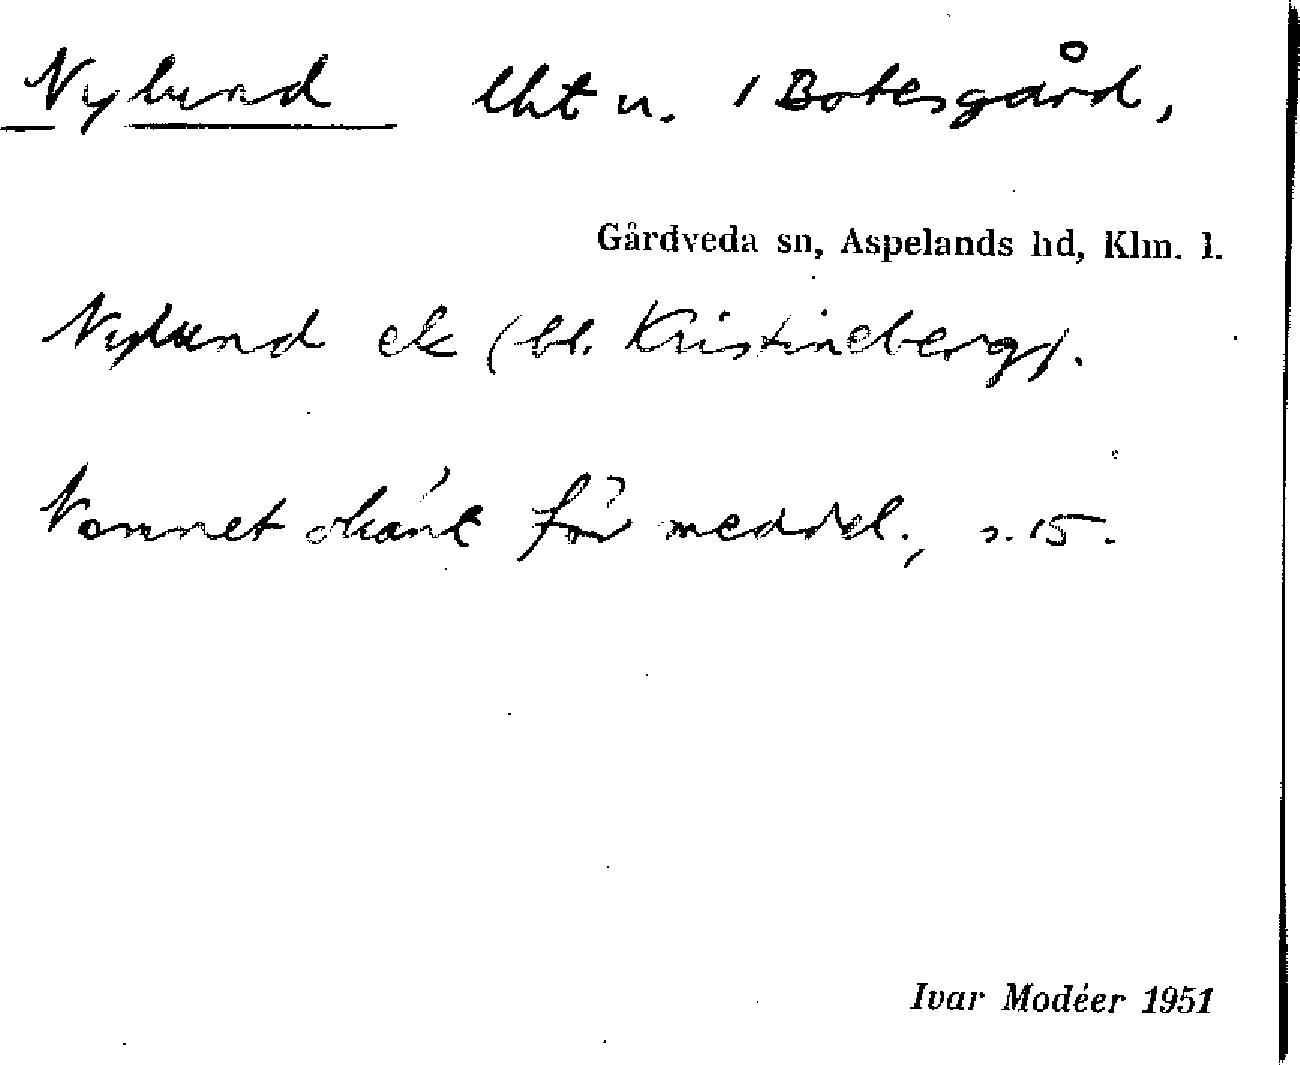 Nylund lht u. 1 Botesgård,
Gårdveda sn, Aspelands hd, Klm. l.
Nylund ek (bl. Kristineberg).
Namnet okänt för meddel., s. 15.
Ivar Modéer 1951